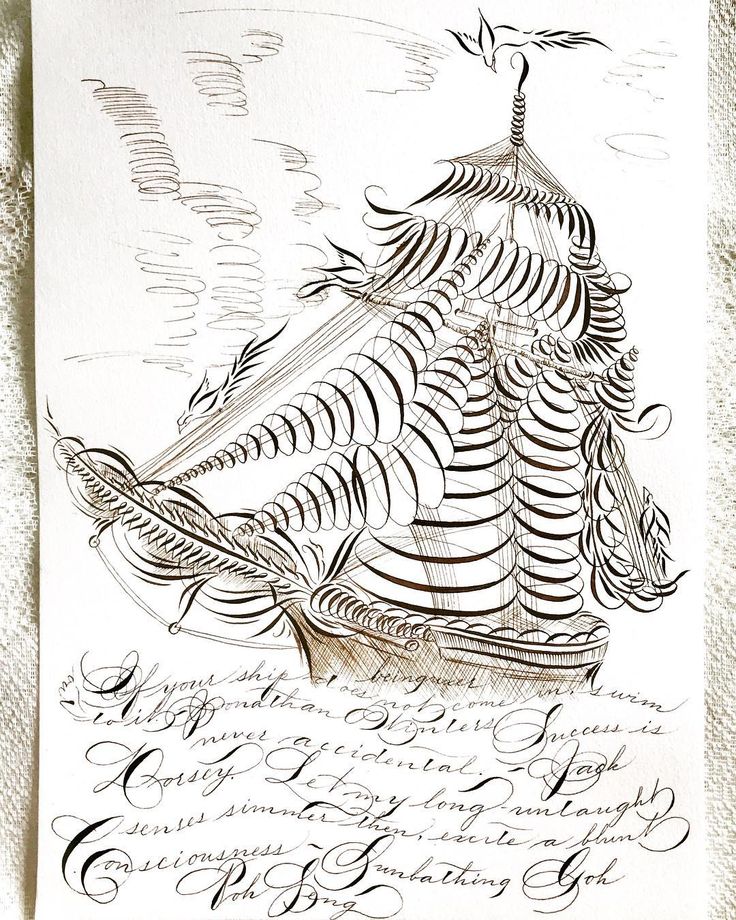 If your ship does not come in, swim
to it. Jonathan Winters Success is
never accidental. - Jack
Dorsey. Let my long-untaught
senses simmer then, excite a blunt
Consciousness - Sunbathing Goh
Poh Seng